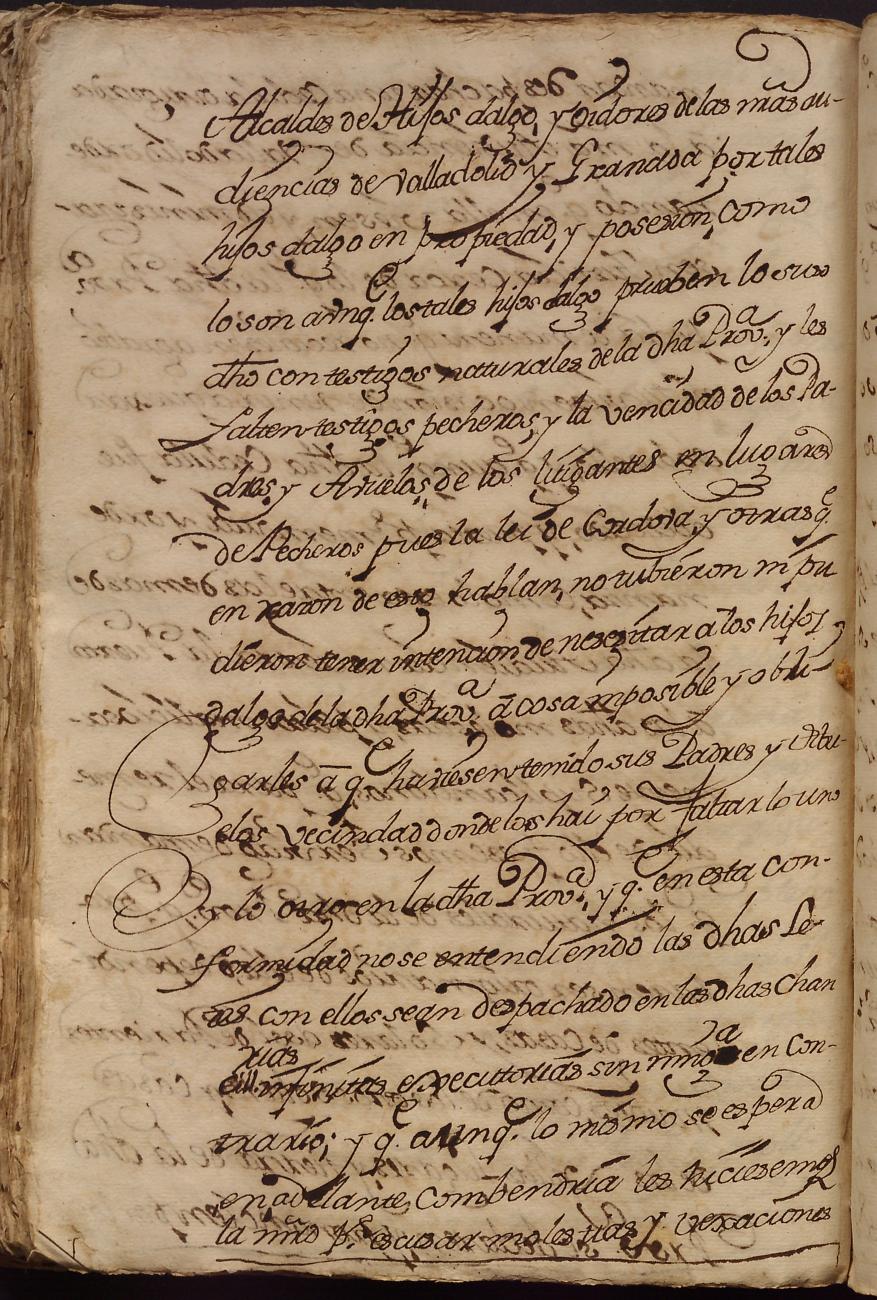 Alcaldes de Hijos dalgo, y oidores de las mrãs au-
diencias de Valladolid y Granada por tales
hijos dalgo en propiedad, y posesion, como
lo son aunq.e los tales hijos dalgo prueben lo suso
dho con testigos naturales de la dha Prov.a, y les
falten testigos pecheros, y la vencidad de los Pa-
dres y Avuelos de los litigantes en lugares
de Pecheros pues la lei de Cordova y otras q.e
en razon de esto hablan, no tubieron ni pu
dieron tener intencion de nezezitar a los hijos
dalgo de la dha Prov.a â cosa imposible y obli-
garles â q.e huviesen tenido sus Padres y Abu-
elos vecindad donde los hai por faltar lo uno
y lo otro en la dha Prov.a, y q.e en esta con-
formidad no se entendiendo las dhas Le-
ies con ellos sean despachado en las dhas Chan
rias
infinitas executtorias sin ning.a en con-
trario; y q.e aunq.e lo mismo se espera
en adelante, combendria les hiciesemos
la mrd p.a escusar molestias y vexaciones